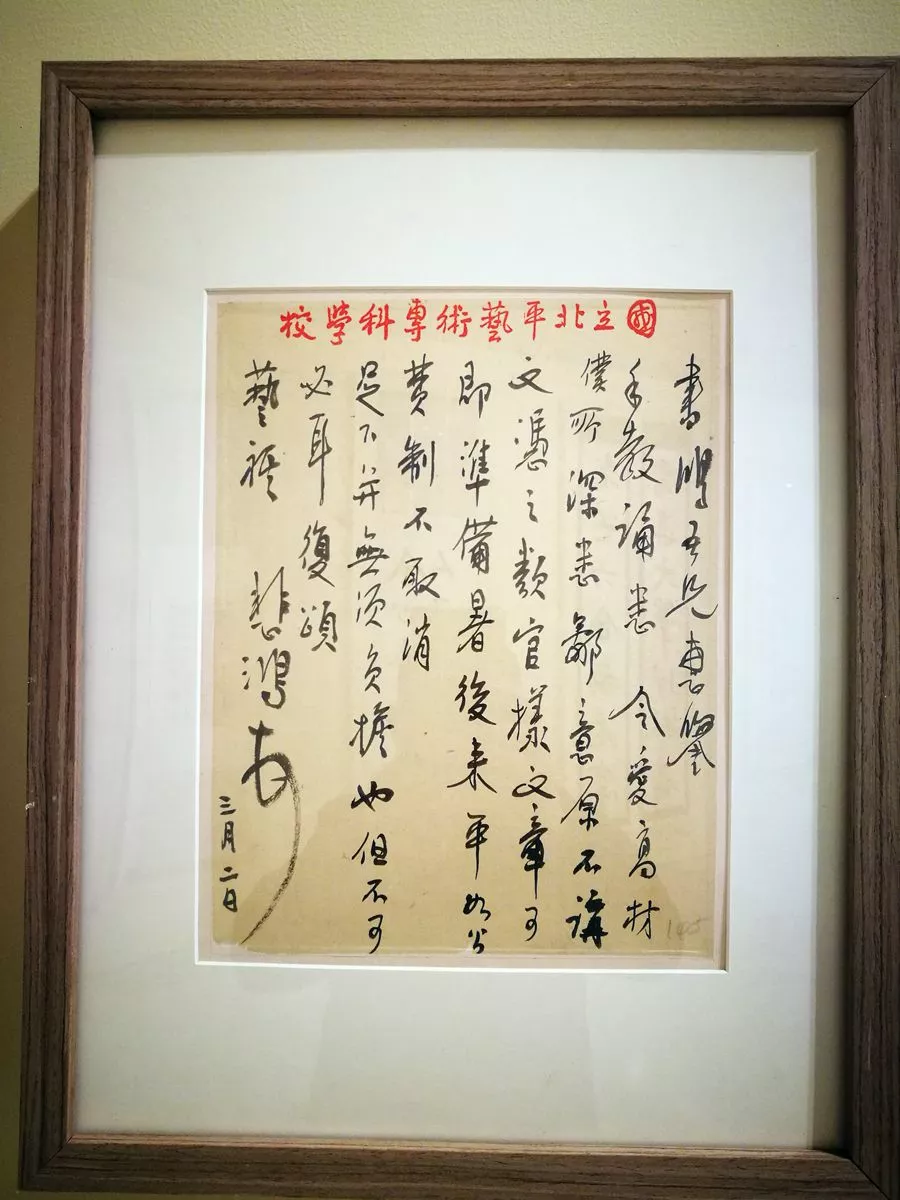 國立北平藝術專科學校
書鴻吾兄惠鑒
手教誦悉 令愛高材
僕所深悉鄙意原不講
文憑之類官樣文章可
即準備暑後來平如公
費制不取消
足下并無須負擔也但不可
必耳復頌
藝祺 悲鴻
三月二日